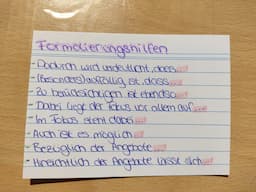 Formulierungshilfen
- Dadurch wird verdeutlicht, dass ...
- (Besonders) auffällig ist, dass ...
- Zu berücksichtigen ist ebenso ...
- Dabei liegt der Fokus vor allem auf ...
- Im Fokus steht dabei ...
- Auch ist es möglich ...
- Bezüglich der Angebote ...
- Hinsichtlich der Angebote lässt sich ...